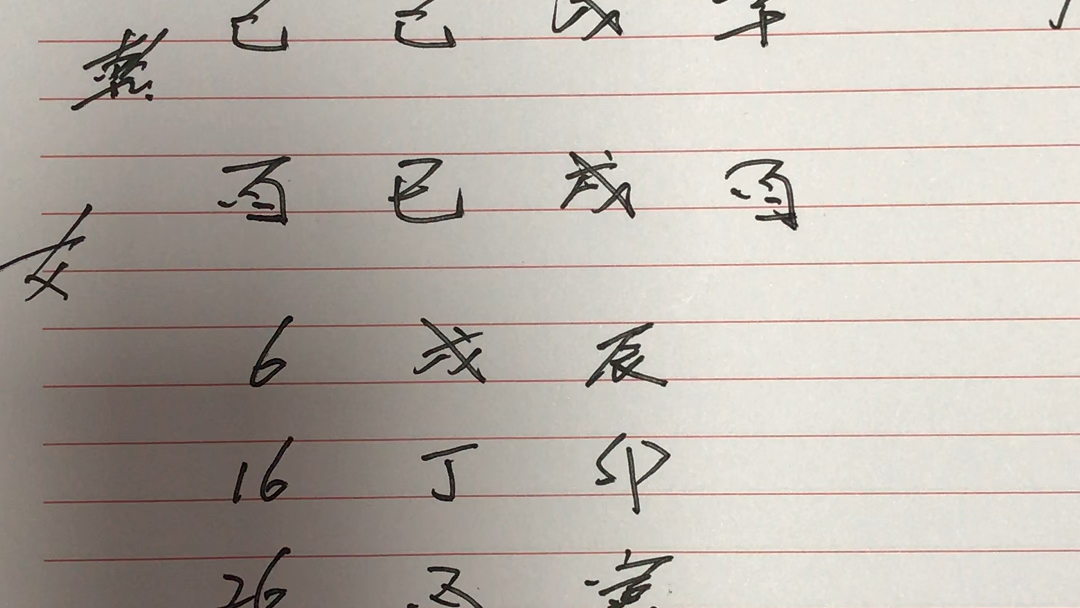 己 己 戊 辛
酉 巳 戌 酉
女
6 戊 辰
16 丁 卯
26 丙 寅